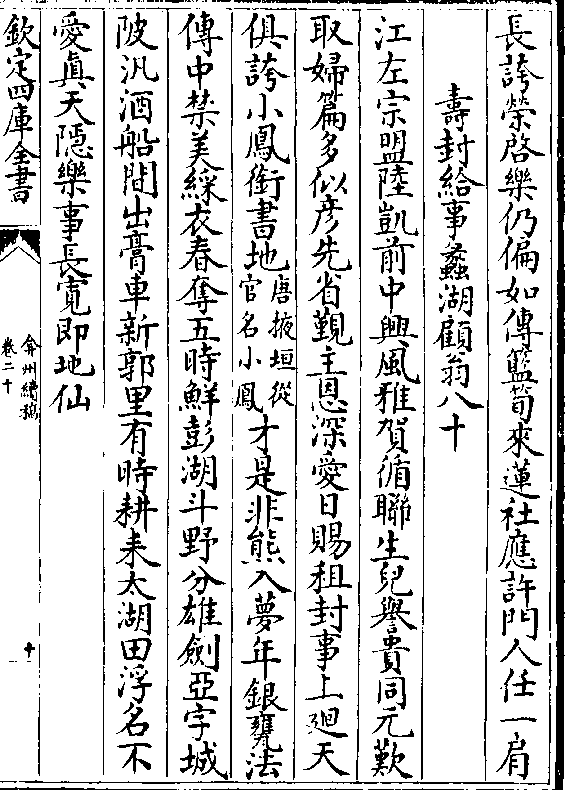 長誇榮啓樂仍偏如傳籃筍來蓮社應許門人任一肩
壽封給事蠡湖顧翁八十
江左宗盟陸凱前中興風雅賀循聯生兒譽貴同元歎
取婦篇多似彦先省覲主恩深愛日賜租封事上廻天
俱誇小鳳銜書地唐掖垣從官名小鳳才是非熊入夢年銀甕法
傳中禁美綵衣春奪五時鮮彭湖斗野分雄劍亞字城
陂汎酒船間出膏車新郭里有時耕耒太湖田浮名不
愛眞天隱樂事長寛即地仙
欽定四庫全書
弇州續稿
卷二十
十